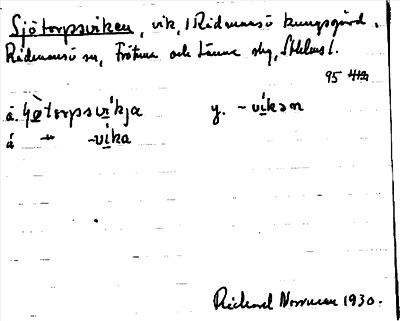 Sjötorpsviken, vik, i Ridmansö kungsgård.
Ridmansö sn, Frötuna och Länna skg, Sthlms l.
95
å. -vìkja y. -vìkən
å " -vìka
Richard Norrman 1930.